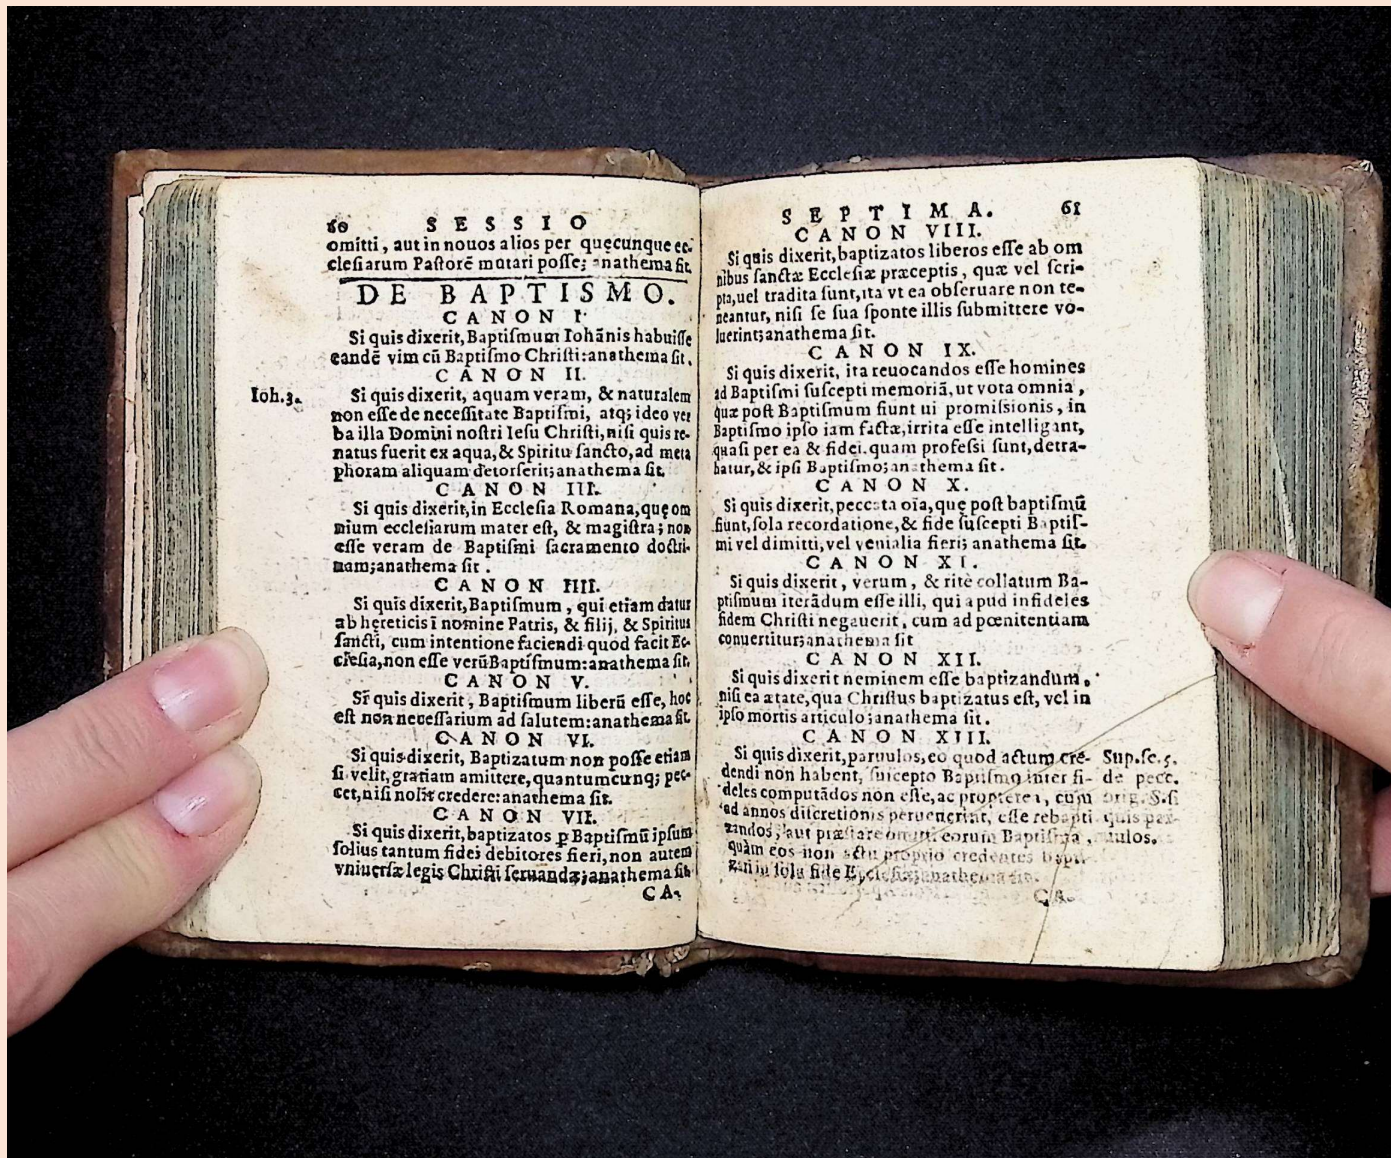 60 SESSIO
omitti, aut in nouos alios per quęcunque ec-
clesiarum Pastorē mutari posse; anathema sit.
DE BAPTISMO.
CANON I.
Si quis dixerit, Baptiſmum Iohānis habuiſſe
eandē vim cū Baptiſmo Chriſti: anathema ſit.
CANON II.
Ioh.3.
Si quis dixerit, aquam veram, & naturalem
non eſſe de neceſſitate Baptiſmi, atq; ideo ver
ba illa Domini noſtri Ieſu Chriſti, niſi quis re-
natus fuerit ex aqua, & Spiritu ſancto, ad meta
phoram aliquam detorſerit; anathema ſit.
CANON III.
Si quis dixerit, in Eccleſia Romana, quę om
nium eccleſiarum mater eſt, & magiſtra; non
eſſe veram de Baptiſmi ſacramento doctri-
nam; anathema ſit.
CANON IIII.
Si quis dixerit, Baptiſmum, qui etiam datur
ab hęreticis ī nomine Patris, & filij, & Spiritus
ſancti, cum intentione faciendi quod facit Ec-
cleſia, non eſſe verū Baptiſmum: anathema ſit.
CANON V.
Si quis dixerit, Baptiſmum liberū eſſe, hoc
eſt non neceſſarium ad ſalutem: anathema ſit.
CANON VI.
Si quis dixerit, Baptizatum non poſſe etiam
ſi velit, gratiam amittere, quantumcunq; pec-
cet, niſi nolit credere: anathema ſit.
CANON VII.
Si quis dixerit, baptizatos ꝑ Baptiſmū ipſum
ſolius tantum fidei debitores fieri, non autem
vniuerſæ legis Chriſti ſeruandæ; anathema ſit
CA-
SEPTIMA. 61
CANON VIII.
Si quis dixerit, baptizatos liberos eſſe ab om
nibus ſanctæ Eccleſiæ præceptis, quæ vel ſcri-
pta, uel tradita ſunt, ita vt ea obſeruare non te-
neantur, niſi ſe ſua ſponte illis ſubmittere vo-
luerint; anathema ſit.
CANON IX.
Si quis dixerit, ita reuocandos eſſe homines
ad Baptiſmi ſuſcepti memoriā, ut vota omnia,
quæ poſt Baptiſmum fiunt ui promiſsionis, in
Baptiſmo ipſo iam factæ, irrita eſſe intelligant,
quaſi per ea & fidei quam profeſsi ſunt, detra-
hatur, & ipſi Baptiſmo; anathema ſit.
CANON X.
Si quis dixerit, peccata oīa, quę poſt baptiſmū
fiunt, ſola recordatione, & fide ſuſcepti Baptiſ-
mi vel dimitti, vel venialia fieri; anathema ſit.
CANON XI.
Si quis dixerit, verum, & ritè collatum Ba-
ptiſmum iterādum eſſe illi, qui apud infideles
fidem Chriſti negauerit, cum ad pœnitentiam
conuertitur; anathema ſit
CANON XII.
Si quis dixerit neminem eſſe baptizandum,
niſi ea ætate, qua Chriſtus baptizatus eſt, vel in
ipſo mortis articulo; anathema ſit.
CANON XIII.
Si quis dixerit, paruulos, eo quod actum cre-
dendi non habent, ſuſcepto Baptiſmo inter fi-
deles computādos non eſſe, ac propterea, cum
ad annos diſcretionis peruenerint, eſſe rebapti
zandos, aut præſtare omitti eorum Baptiſma,
quàm eos non actu proprio credentes bapti-
zari in ſola fide Eccleſiæ; anathema ſit.
Sup.ſe.5.
de pecc.
orig. §.ſi
quis par-
uulos.
CA-